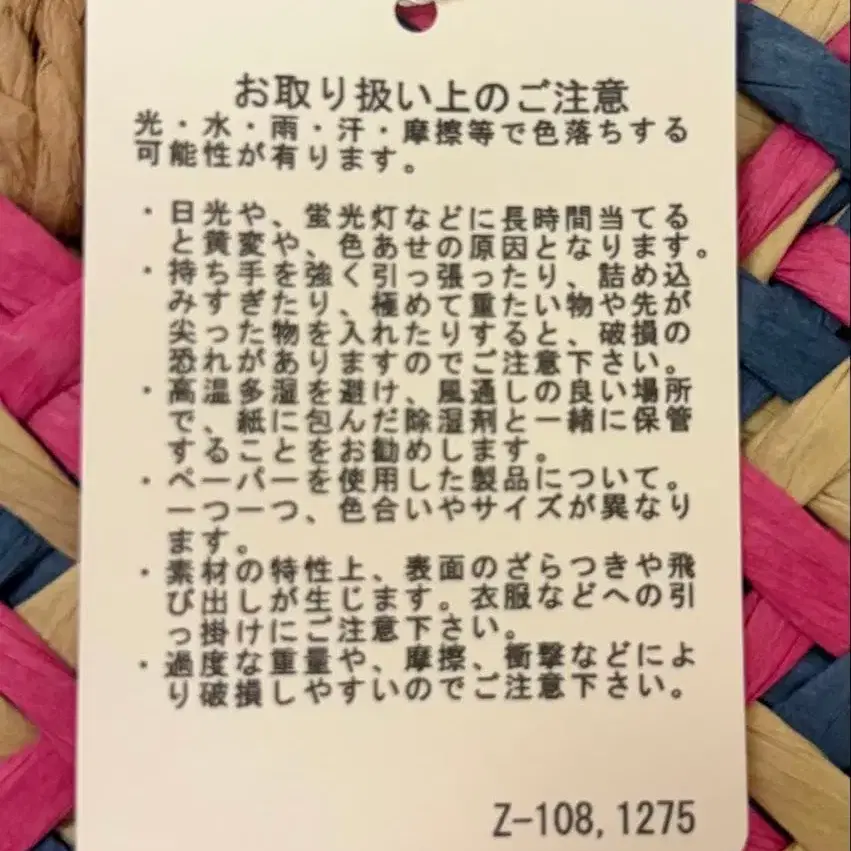 お取り扱い上のご注意
光・水・雨・汗・摩擦等で色落ちする
可能性が有ります。
・日光や、蛍光灯などに長時間当てる
と黄変や、色あせの原因となります。
・持ち手を強く引っ張ったり、詰め込
みすぎたり、極めて重たい物や先が
尖った物を入れたりすると、破損の
恐れがありますのでご注意下さい。
・高温多湿を避け、風通しの良い場所
で、紙に包んだ除湿剤と一緒に保管
することをお勧めします。
・ペーパーを使用した製品について。
一つ一つ、色合いやサイズが異なり
ます。
・素材の特性上、表面のざらつきや飛
び出しが生じます。衣服などへの引
っ掛けにご注意下さい。
・過度な重量や、摩擦、衝撃などによ
り破損しやすいのでご注意下さい。
Z-108,1275